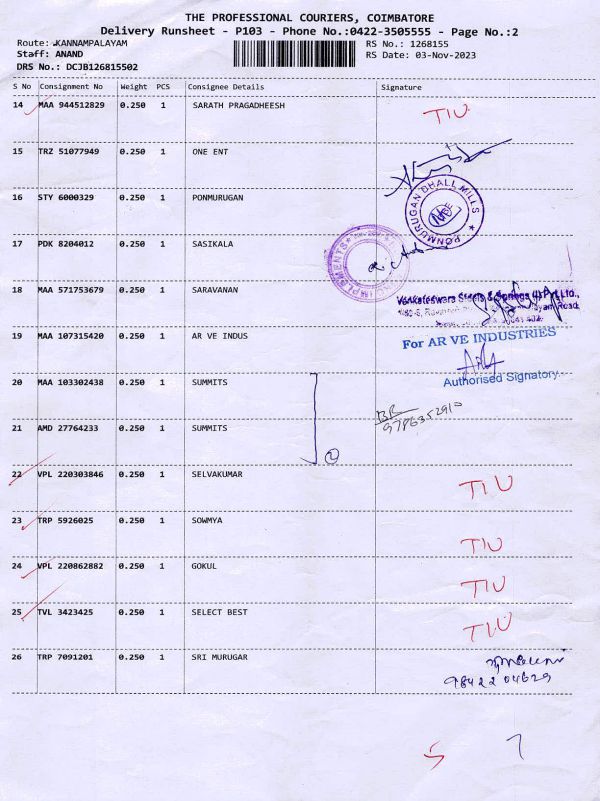 THE PROFESSIONAL COURIERS, COIMBATORE
Delivery Runsheet - P103 - Phone No.:0422-3505555 - Page No.:2
Route: KANNAMPALAYAM RS No.: 1268155
Staff: ANAND RS Date: 03-Nov-2023
DRS No.: DCJB126815502
S No Consignment No Weight PCS Consignee Details Signature
14 MAA 944512829 0.250 1 SARATH PRAGADHEESH TIU
15 TRZ 51077949 0.250 1 ONE ENT
16 STY 6000329 0.250 1 PONMURUGAN PONMURUGAN DHALL MILLS
17 PDK 8204012 0.250 1 SASIKALA
18 MAA 571753679 0.250 1 SARAVANAN Venkateswara Steels & Springs (I) Pvt Ltd.,
19 MAA 107315420 0.250 1 AR VE INDUS For AR VE INDUSTRIES
Authorised Signatory
20 MAA 103302438 0.250 1 SUMMITS
21 AMD 27764233 0.250 1 SUMMITS 9786352910
2
22 VPL 220303846 0.250 1 SELVAKUMAR TIU
23 TRP 5926025 0.250 1 SOWMYA TIU
24 VPL 220862882 0.250 1 GOKUL TIU
25 TVL 3423425 0.250 1 SELECT BEST TIU
26 TRP 7091201 0.250 1 SRI MURUGAR
98422 04629
5 7